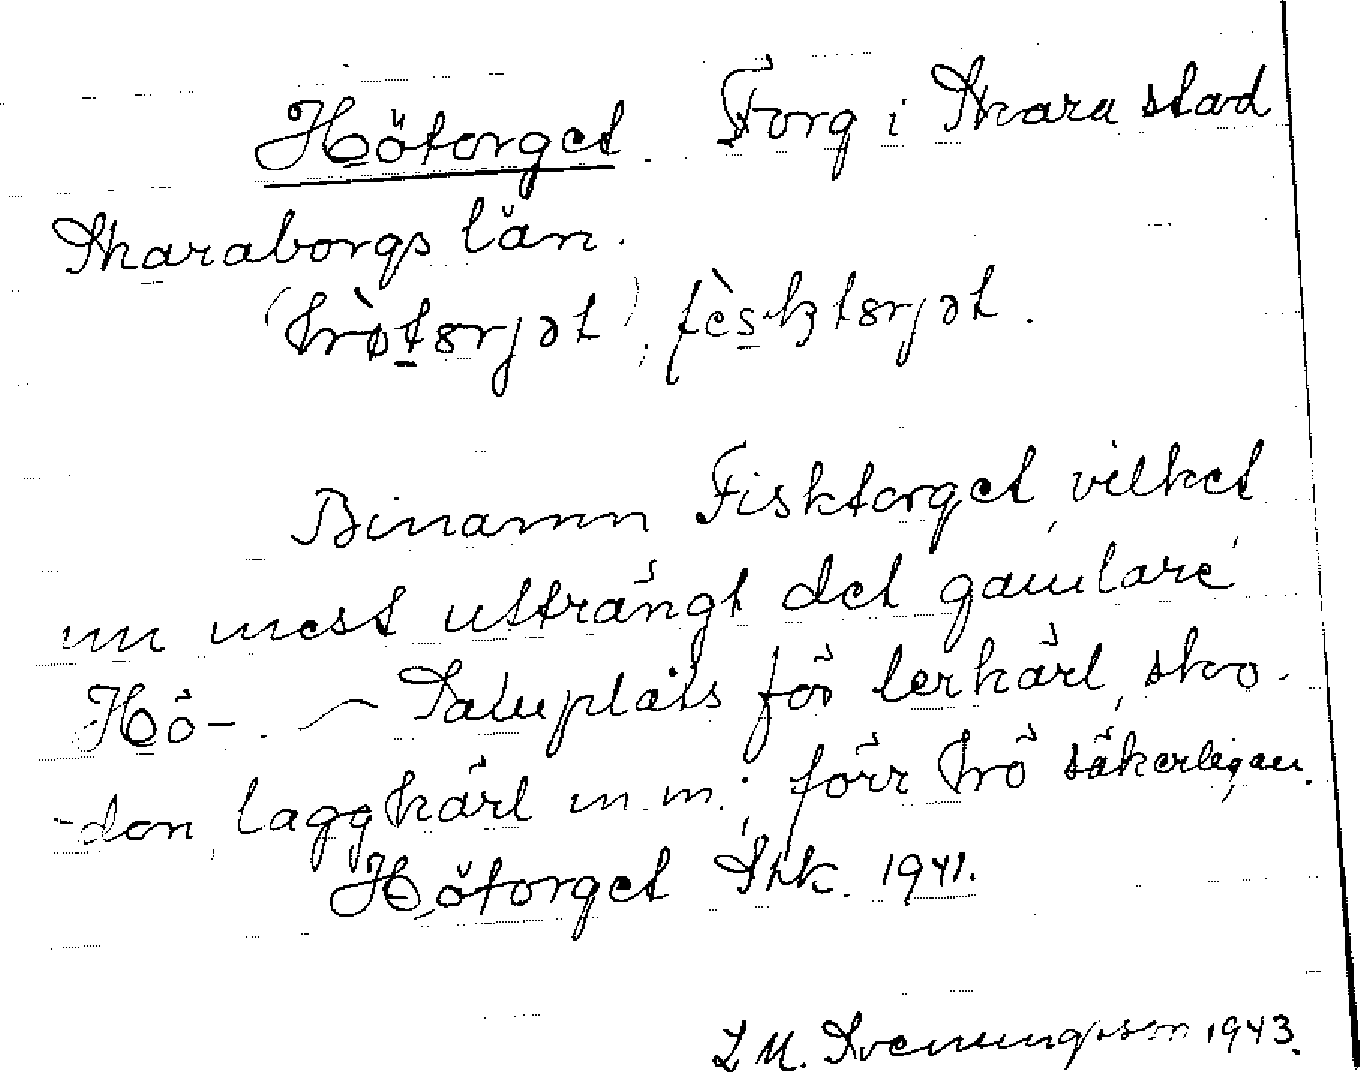 Hötorget. Torg i Skara stad
Skaraborgs län.
Binamn Fisktorget, vilket
nu mest utträngt det gamlare
Hö-. — Saluplats för lerkärl, sko-
-don, laggkärl m.m.; förr hö säkerligen.
Hötorget Shk. 1941.
L M. Svenungsson 1943.